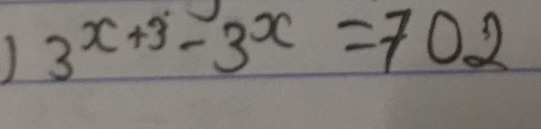 ) 3^{x+3} - 3^x = 702